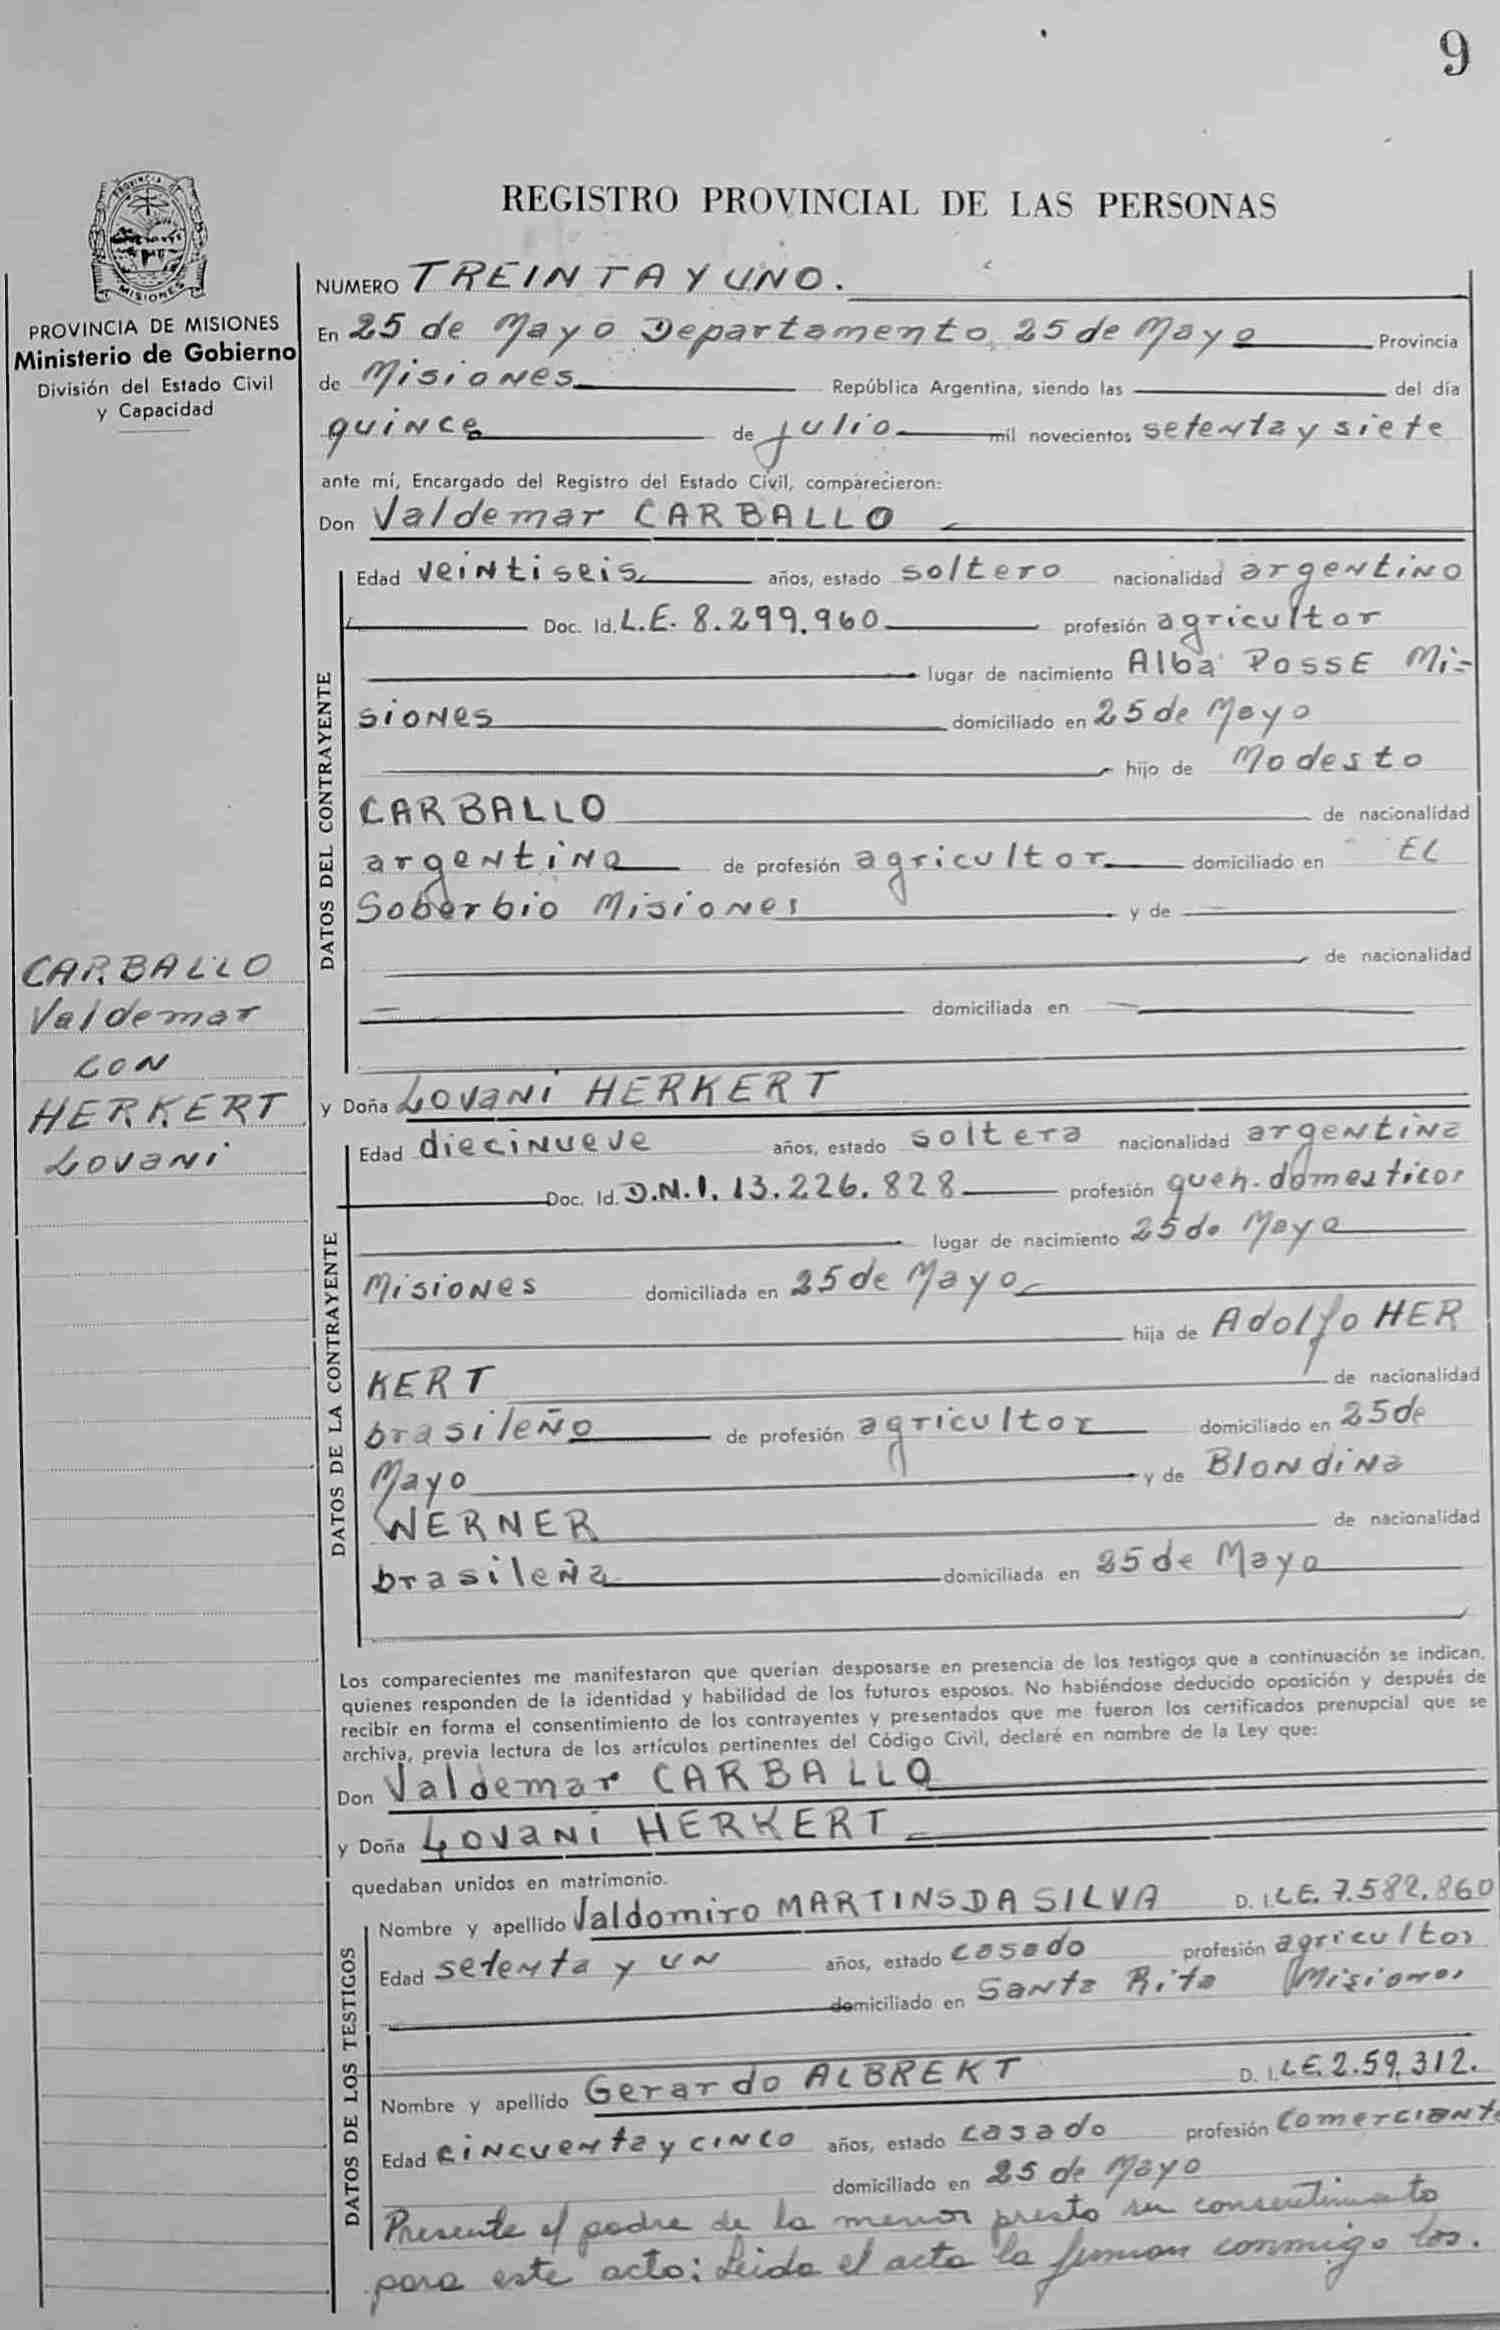 9
PROVINCIA DE
MISIONES
PROVINCIA DE MISIONES
Ministerio de Gobierno
División del Estado Civil
y Capacidad
REGISTRO PROVINCIAL DE LAS PERSONAS
NUMERO TREINTA Y UNO.
En 25 de Mayo Departamento 25 de Mayo Provincia
de Misiones República Argentina, siendo las del día
quince de julio mil novecientos setenta y siete
ante mí, Encargado del Registro del Estado Civil, comparecieron:
Don Valdemar CARBALLO
DATOS DEL CONTRAYENTE
Edad veintiseis años, estado soltero nacionalidad argentino
Doc. Id. L.E. 8.299.960 profesión agricultor
lugar de nacimiento Alba POSSE Mi=
siones domiciliado en 25 de Mayo
hijo de Modesto
CARBALLO de nacionalidad
argentina de profesión agricultor domiciliado en EL
Soberbio Misiones y de
de nacionalidad
domiciliada en
CARBALLO
Valdemar
CON
HERKERT
Lovani
y Doña Lovani HERKERT
DATOS DE LA CONTRAYENTE
Edad diecinueve años, estado soltera nacionalidad argentina
Doc. Id. D.N.I. 13.226.828 profesión queh. domesticos
lugar de nacimiento 25 de Mayo
Misiones domiciliada en 25 de Mayo
hija de Adolfo HER
KERT de nacionalidad
brasileño de profesión agricultor domiciliado en 25 de
Mayo y de Blondina
WERNER de nacionalidad
brasileña domiciliada en 25 de Mayo
Los comparecientes me manifestaron que querían desposarse en presencia de los testigos que a continuación se indican,
quienes responden de la identidad y habilidad de los futuros esposos. No habiéndose deducido oposición y después de
recibir en forma el consentimiento de los contrayentes y presentados que me fueron los certificados prenupcial que se
archiva, previa lectura de los artículos pertinentes del Código Civil, declaré en nombre de la Ley que:
Don Valdemar CARBALLO
y Doña Lovani HERKERT
quedaban unidos en matrimonio.
DATOS DE LOS TESTIGOS
Nombre y apellido Valdomiro MARTINS DA SILVA D. I. LE. 7.582.860
Edad setenta y un años, estado casado profesión agricultor
domiciliado en Santa Rita Misiones
Nombre y apellido Gerardo ALBREKT D. I. LE. 2.59.312.
Edad cincuenta y cinco años, estado casado profesión comerciante
domiciliado en 25 de Mayo
Presente el padre de la menor presto su consentimiento
para este acto: Leida el acta la firman conmigo los.